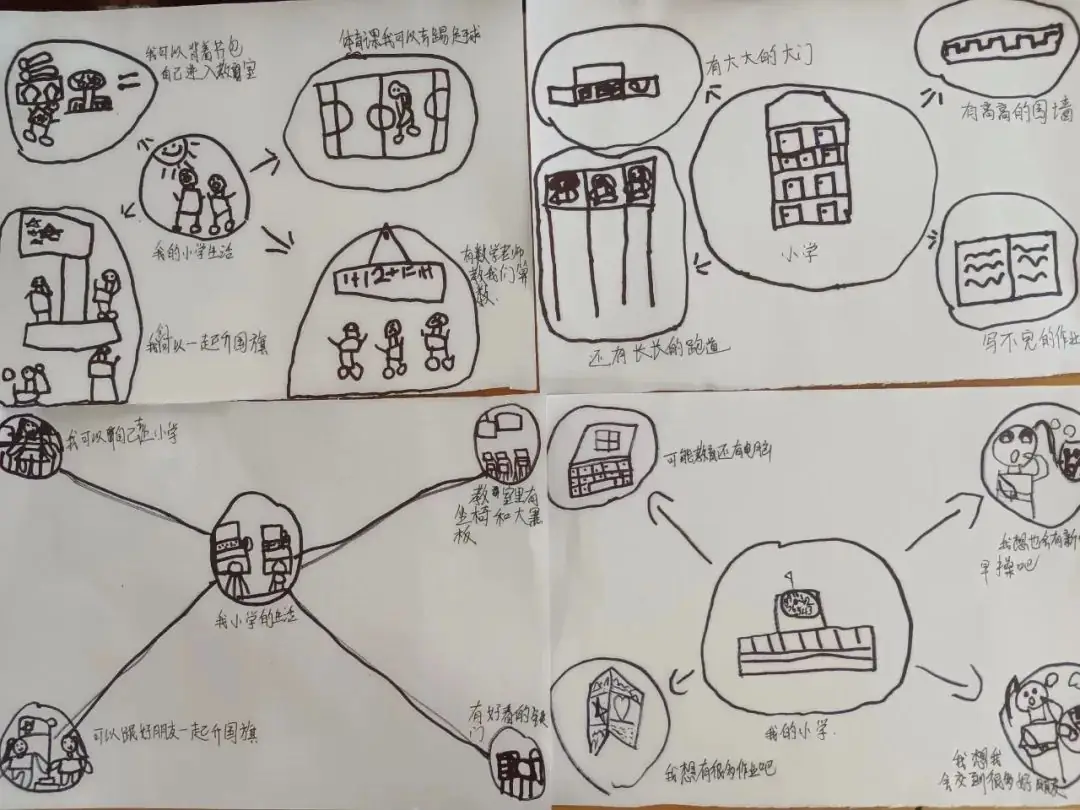 我可以背着书包
自己进入教室
体育课我可以去踢足球
我的小学生活
1+1 2+1=
有数学老师
教我们算
数.
我们可以一起升国旗
有大大的大门
有高高的围墙
小学
还有长长的跑道
写不完的作业
我可以自己进小学
教室里有
坐椅和大黑
板
我小学的生活
可以跟好朋友一起升国旗
有好看的铁
门
可能教室还有电脑
我想也会有新
早操吧
我的小学.
我想有很多作业吧
我想我
会交到很多好朋友